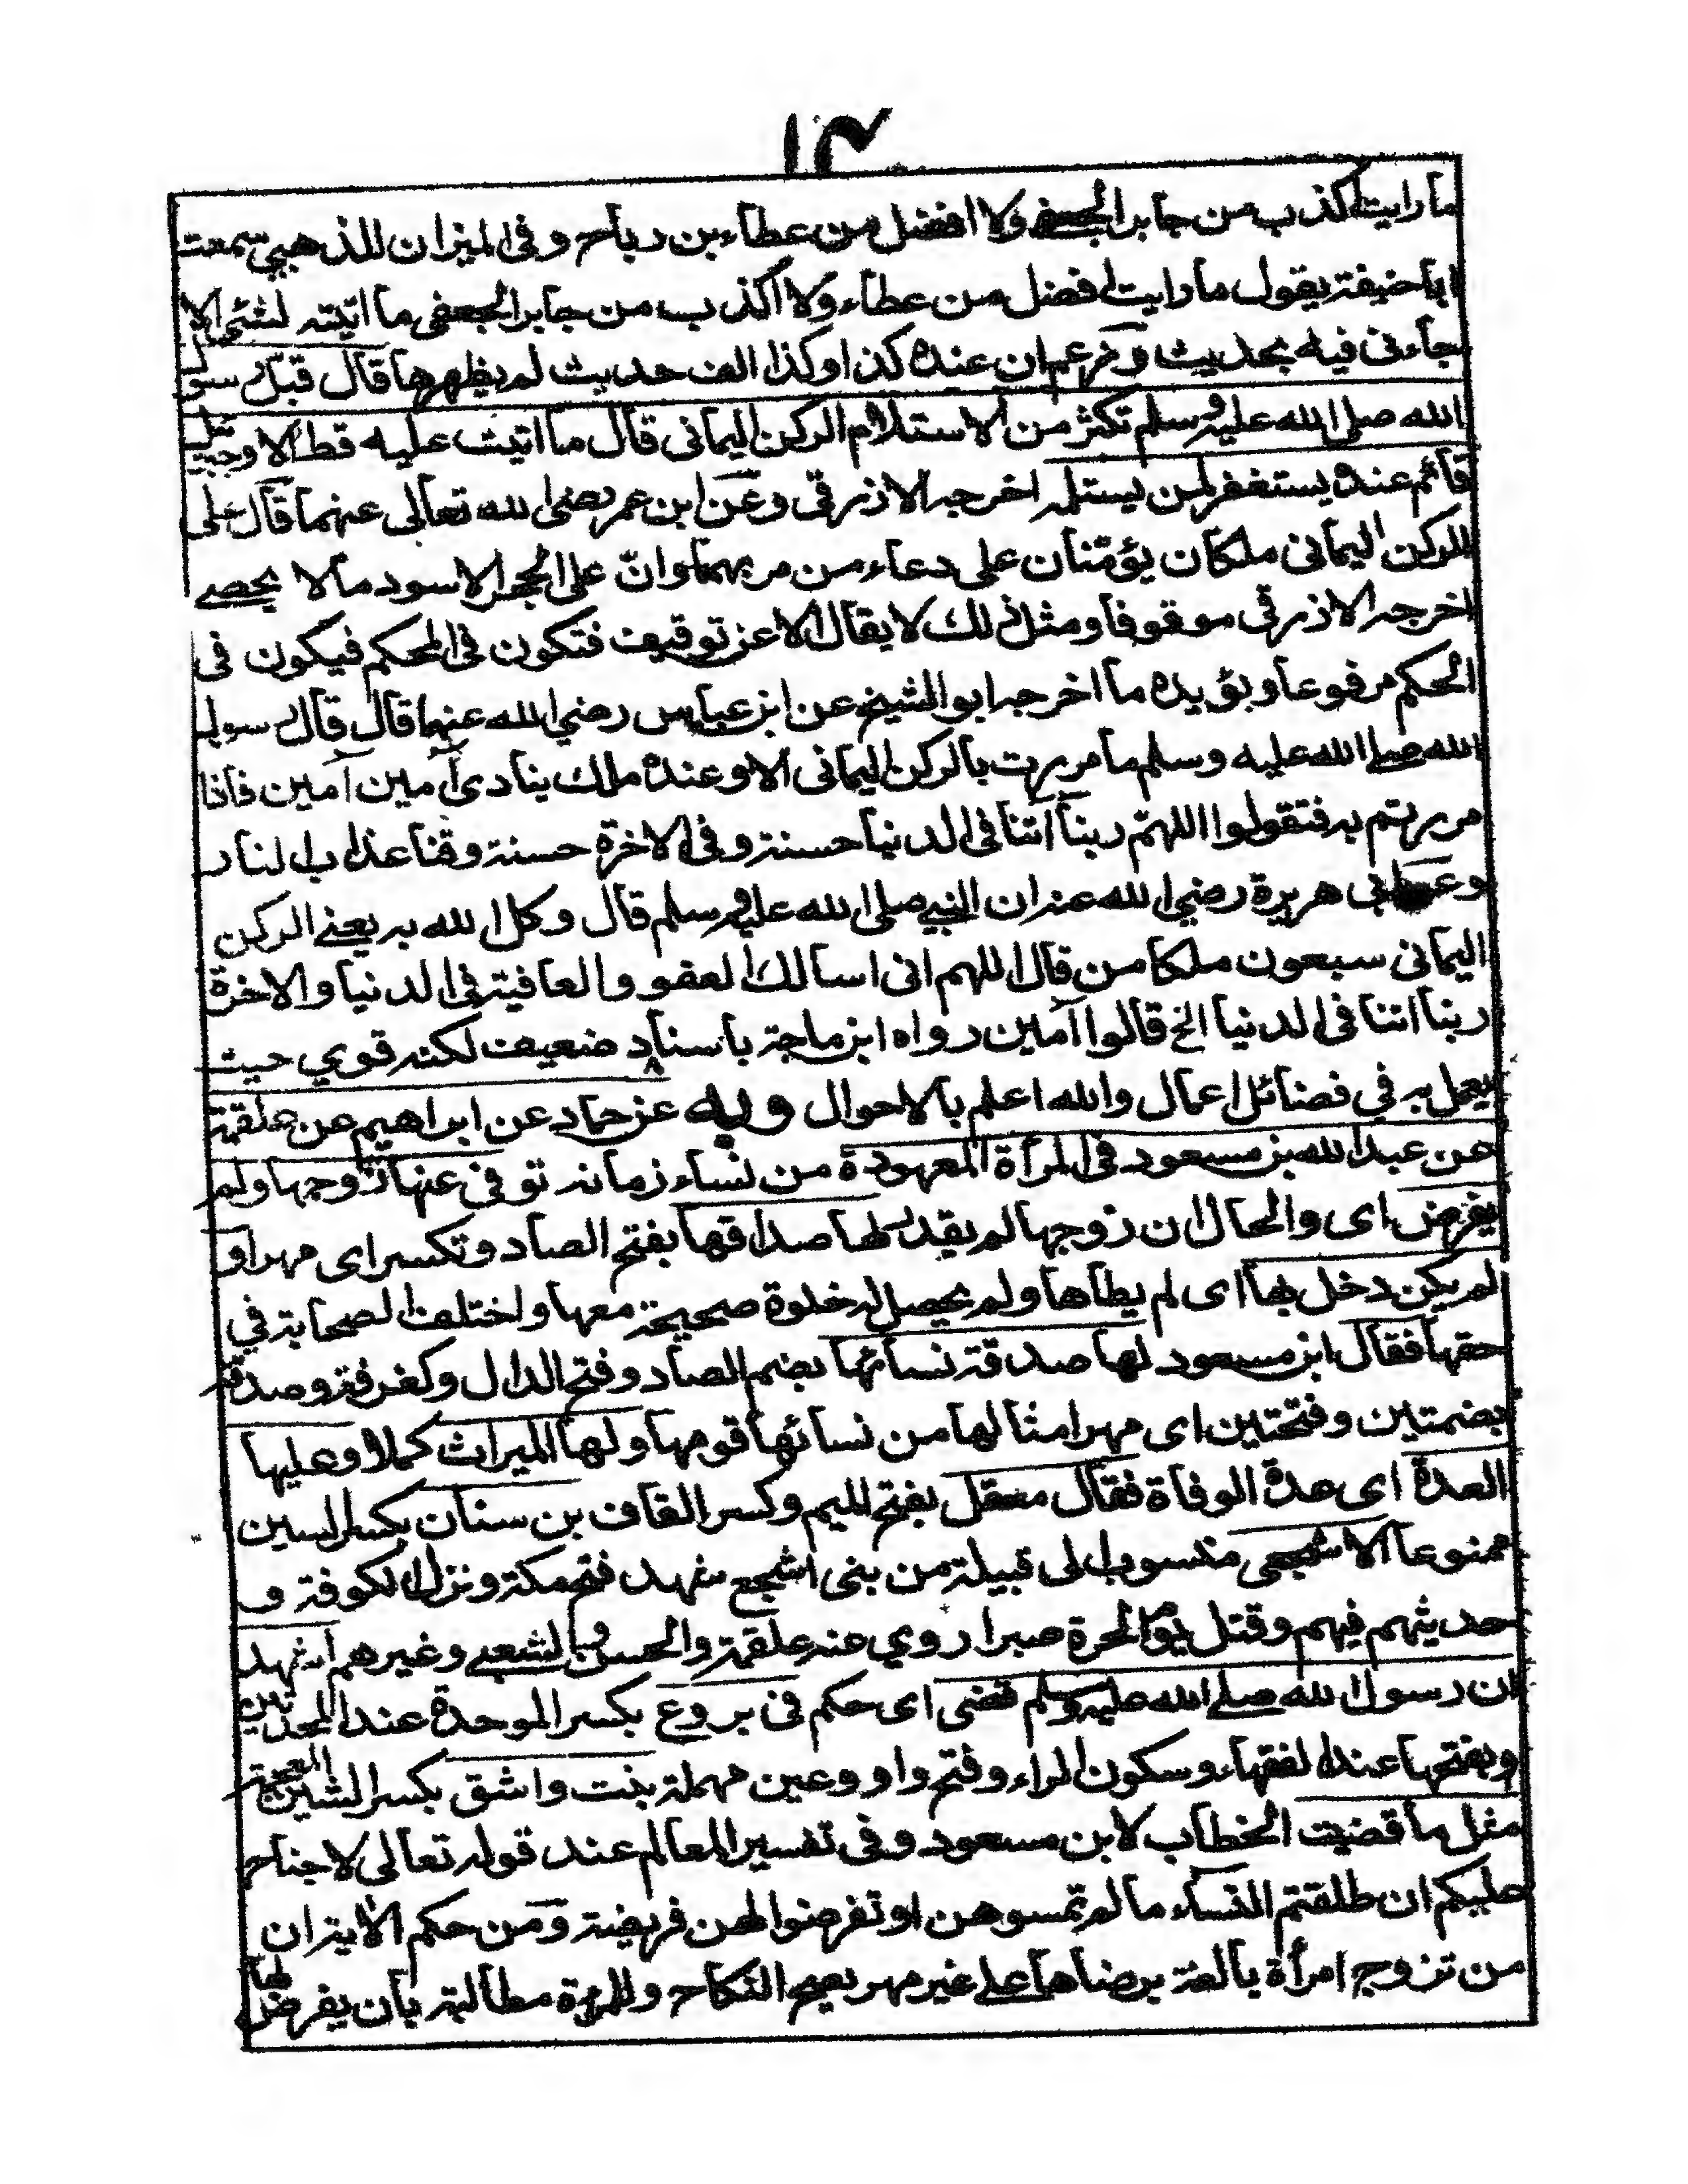 ١٤
ما رايت اكذب من جابر الجعفي ولا افضل من عطاء بن رباح وفى الميزان للذهبي سمعت
ابا حنيفة يقول ما رايت افضل من عطاء ولا اكذب من جابر الجعفى ما اتيته لشئ الا
جاءنى فيه بحديث وزعم ان عنده كذا وكذا الف حديث لم يظهرها قال قيل رسول
الله صلى الله عليه وسلم تكثر من الاستلام الركن اليمانى قال ما اتيت عليه قط الا وجبريل
قائم عنده يستغفر لمن يستلمه اخرجه الازرقى وعن ابن عمر رضى الله تعالى عنهما قال على
الركن اليمانى ملكان يؤمّنان على دعاء من مر بهما وانّ على الحجر الاسود مالا يحصے
اخرجه الازرقى موقوفا ومثل ذلك لا يقال الا عن توقيف فتكون فى المحكم فيكون فى
الحكم مرفوعا ويؤيده ما اخرجه ابو الشيخ عن ابن عباس رضي الله عنهما قال قال رسول
الله صلے الله عليه وسلم ما مررت بالركن اليمانى الا وعنده ملك ينادى آمين آمين فاذا
مررتم به فتقولوا اللهمّ ربنا آتنا فى الدنيا حسنة وفى الاخرة حسنة وقنا عذاب النار
وعن ابى هريرة رضي الله عنه ان النبي صلى الله عليه وسلم قال وكل الله به يعنے الركن
اليمانى سبعون ملكا من قال اللهم انى اسالك العفو والعافية فى الدنيا والاخرة
ربنا اتنا فى الدنيا الخ قالوا آمين رواه ابن ماجة باسناد ضعيف لكنه قوي حيث
يعمل به في فضائل اعمال والله اعلم بالاحوال وبه عن حماد عن ابراهيم عن علقمة
عن عبد الله بن مسعود فى المرأة المعهودة من نساء زمانه توفى عنها زوجها ولم
يفرض اى والحال ان زوجها لم يقدر لها صداقها بفتح الصاد وتكسر اى مهرا و
لم يكن دخل بها اى لم يطاها ولم يحصل له خلوة صحيحة معها واختلف الصحابة في
حقها فقال ابن مسعود لها صدقة نسائها بضم الصاد وفتح الدال وكغرفة وصدقة
بضمتين وفتحتين اى مهر امثالها من نسائها قومها ولها الميراث كملا وعليها
العدة اى عدة الوفاة فقال معقل بفتح الميم وكسر القاف بن سنان بكسر السين
ممنوعا الاشجعى منسوب الى قبيلة من بنى اشجع شهد فتح مكة ونزل الكوفة و
حديثهم فيهم وقتل يوم الحرة صبرا روي عنه علقمة والحسن والشعبے وغيرهم اشهد
ان رسول الله صلے الله عليه وسلم قضى اى حكم فى بروع بكسر الموحدة عند المحدثين
وبفتحها عند الفقهاء وسكون الراء وفتح واو وعين مهملة بنت واشق بكسر الشين المعجمة
مثل ما قضيت الخطاب لابن مسعود وفى تفسير المعالم عند قوله تعالى لا جناح
عليكم ان طلقتم النساء ما لم تمسوهن او تفرضوا لهن فريضة ومن حكم الاية ان
من تزوج امرأة بالغة برضاها على غير مهر يصح النكاح وللمرءة مطالبته بان يفرض لها